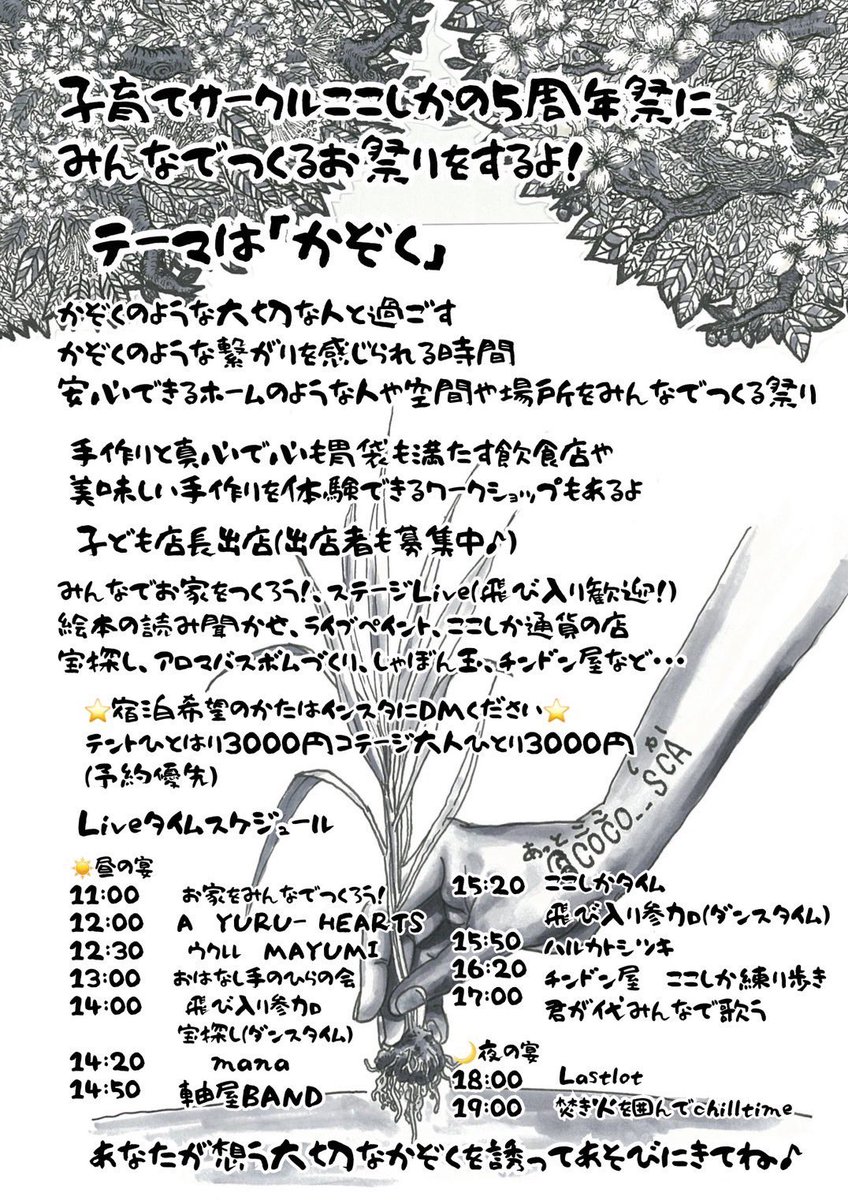 子育てサークルここしかの5周年祭に
みんなでつくるお祭りをするよ!
テーマは「かぞく」
かぞくのような大切な人と過ごす
かぞくのような繋がりを感じられる時間
安心できるホームのような人や空間や場所をみんなでつくる祭り
手作りと真心で心も胃袋も満たす飲食店や
美味しい手作りを体験できるワークショップもあるよ
子ども店長出店(出店者も募集中♪)
みんなでお家をつくろう!、ステージLive(飛び入り歓迎!)
絵本の読み聞かせ、ライブペイント、ここしか通貨の店
宝探し、アロマバスボムづくり、しゃぼん玉、チンドン屋など・・・
⭐宿泊希望のかたはインスタにDMください⭐
テントひとはり3000円コテージ大人ひとり3000円
(予約優先)
あっと ここ しか
@COCO__SCA
Liveタイムスケジュール
☀️昼の宴
11:00 お家をみんなでつくろう!
12:00 A YURU-HEARTS
12:30 ウクレレ MAYUMI
13:00 おはなし手のひらの会
14:00 飛び入り参加
宝探し(ダンスタイム)
14:20 mana
14:50 軸屋BAND
15:20 ここしかタイム
飛び入り参加(ダンスタイム)
15:50 ハルカトシツキ
16:20 チンドン屋 ここしか練り歩き
17:00 君が代みんなで歌う
🌙夜の宴
18:00 Lastlot
19:00 焚き火を囲んでchilltime
あなたが想う大切なかぞくを誘ってあそびにきてね♪